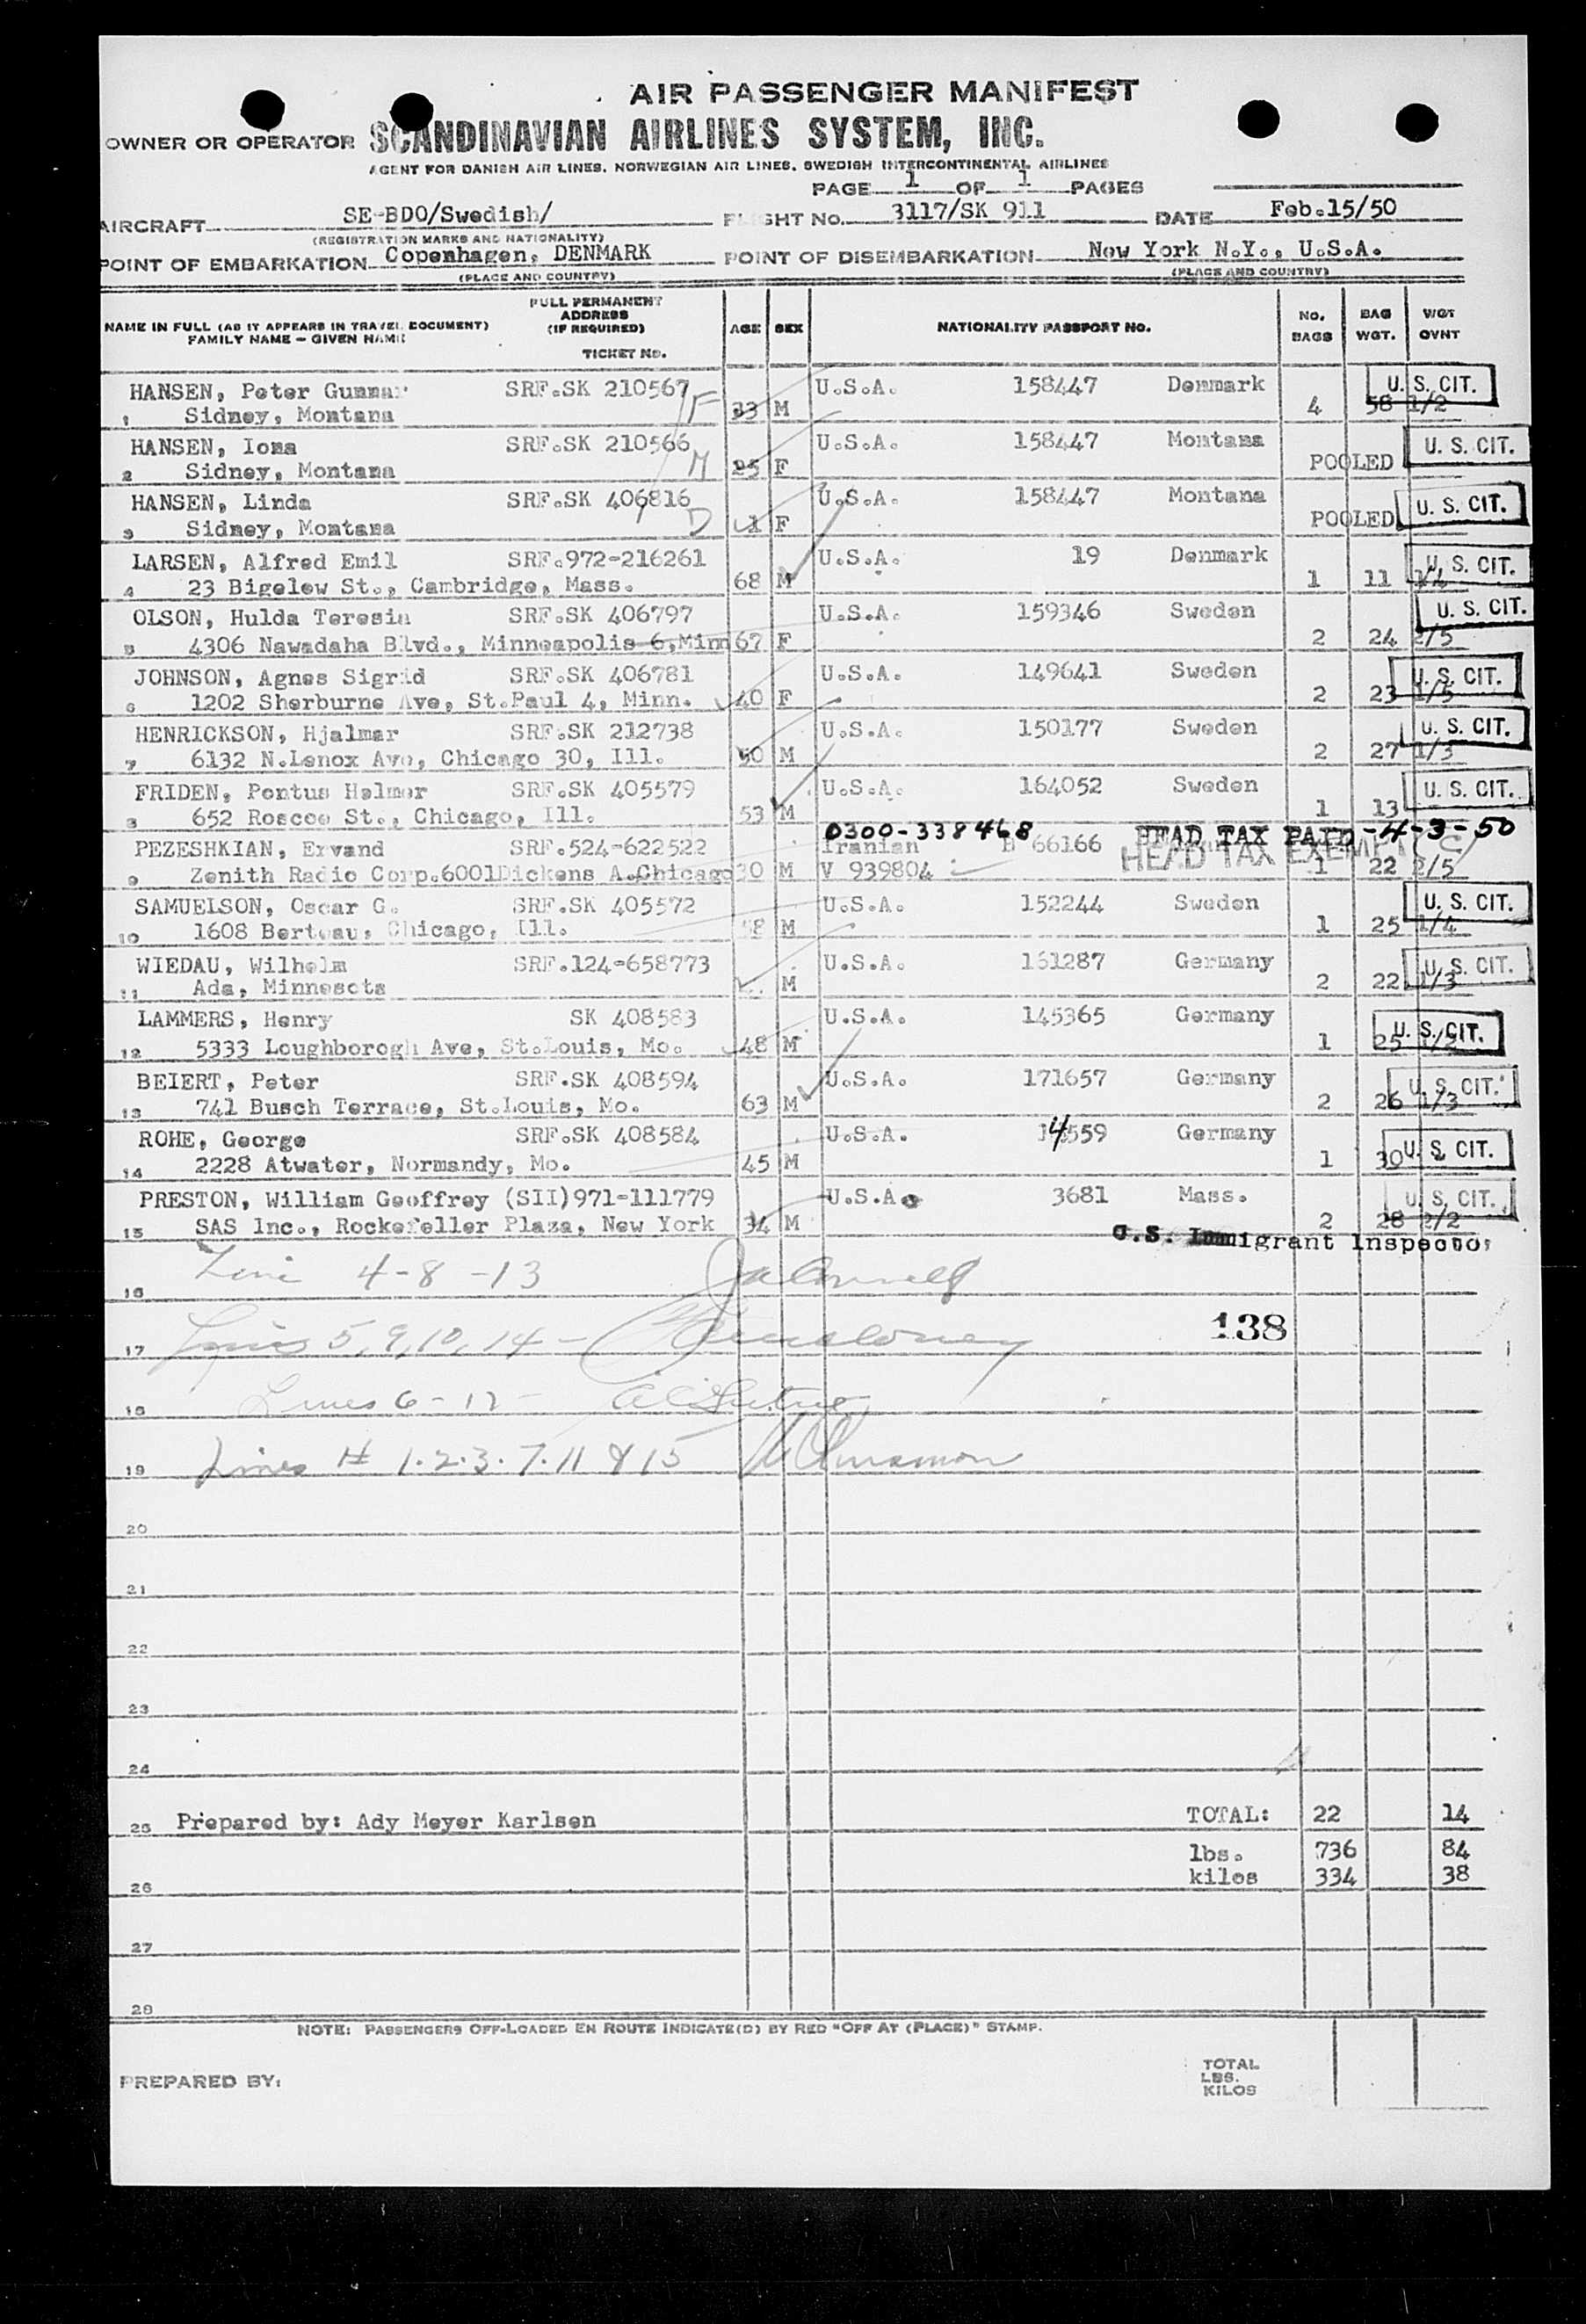 AIR PASSENGER MANIFEST
OWNER OR OPERATOR SCANDINAVIAN AIRLINES SYSTEM, INC.
AGENT FOR DANISH AIR LINES, NORWEGIAN AIR LINES, SWEDISH INTERCONTINENTAL AIRLINES
PAGE 1 OF 1 PAGES
AIRCRAFT SE-BDO/Swedish/ FLIGHT NO. 3117/SK 911 DATE Feb.15/50
(REGISTRATION MARKS AND NATIONALITY)
POINT OF EMBARKATION Copenhagen, DENMARK POINT OF DISEMBARKATION New York N.Y., U.S.A.
(PLACE AND COUNTRY) (PLACE AND COUNTRY)
NAME IN FULL (AS IT APPEARS IN TRAVEL DOCUMENT) FAMILY NAME - GIVEN NAME FULL PERMANENT ADDRESS (IF REQUIRED) TICKET NO. AGE SEX NATIONALITY PASSPORT NO. NO. BAGS BAG WGT. WGT OVNT
HANSEN, Peter Gunnar SRF.SK 210567 F U.S.A. 158447 Denmark U.S. CIT.
1 Sidney, Montana 33 M 4 58 1/2
HANSEN, Iona SRF.SK 210566 M U.S.A. 158447 Montana U. S. CIT.
2 Sidney, Montana 25 F POOLED
HANSEN, Linda SRF.SK 406816 D U.S.A. 158447 Montana U. S. CIT.
3 Sidney, Montana 1 F POOLED
LARSEN, Alfred Emil SRF.972-216261 U.S.A. 19 Denmark U. S. CIT.
4 23 Bigelow St., Cambridge, Mass. 68 M 1 11 1/4
OLSON, Hulda Teresia SRF.SK 406797 U.S.A. 159346 Sweden U. S. CIT.
5 4306 Nawadaha Blvd., Minneapolis 6,Minn 67 F 2 24 2/5
JOHNSON, Agnes Sigrid SRF.SK 406781 U.S.A. 149641 Sweden U. S. CIT.
6 1202 Sherburne Ave, St.Paul 4, Minn. 40 F 2 23 1/5
HENRICKSON, Hjalmar SRF.SK 212738 U.S.A. 150177 Sweden U. S. CIT.
7 6132 N.Lenox Ave, Chicago 30, Ill. 50 M 2 27 1/3
FRIDEN, Pontus Helmer SRF.SK 405579 U.S.A. 164052 Sweden U. S. CIT.
8 652 Roscoe St., Chicago, Ill. 53 M 1 13
0300-338468 HEAD TAX PAID -4-3-50
PEZESHKIAN, Ervand SRF.524-622522 Iranian B 66166 HEAD TAX EXEMPT
9 Zenith Radio Corp.6001Dickens A.Chicago 30 M V 939804 1 22 2/5
SAMUELSON, Oscar G. SRF.SK 405572 U.S.A. 152244 Sweden U. S. CIT.
10 1608 Berteau, Chicago, Ill. 58 M 1 25 1/4
WIEDAU, Wilhelm SRF.124-658773 U.S.A. 161287 Germany U. S. CIT.
11 Ada, Minnesota M 2 22 1/3
LAMMERS, Henry SK 408583 U.S.A. 145365 Germany U. S. CIT.
12 5333 Loughborogh Ave, St.Louis, Mo. 48 M 1 25
BEIERT, Peter SRF.SK 408594 U.S.A. 171657 Germany U. S. CIT.
13 741 Busch Terrace, St.Louis, Mo. 63 M 2 26 1/3
ROHE, George SRF.SK 408584 U.S.A. 14559 Germany U. S. CIT.
14 2228 Atwater, Normandy, Mo. 45 M 1 30
PRESTON, William Geoffrey (SII)971-111779 U.S.A. 3681 Mass. U. S. CIT.
15 SAS Inc., Rockefeller Plaza, New York 34 M 2 28 2/2
U.S. Immigrant Inspector
16 Line 4-8-13
138
17 Lines 5, 9, 10, 14 -
18 Lines 6 - 12 -
19 Lines # 1.2.3.7.11 & 15
20
21
22
23
24
25 Prepared by: Ady Meyer Karlsen TOTAL: 22 14
lbs. 736 84
26 kilos 334 38
27
28
NOTE: PASSENGERS OFF-LOADED EN ROUTE INDICATE(D) BY RED "OFF AT (PLACE)" STAMP.
PREPARED BY: TOTAL
LBS.
KILOS